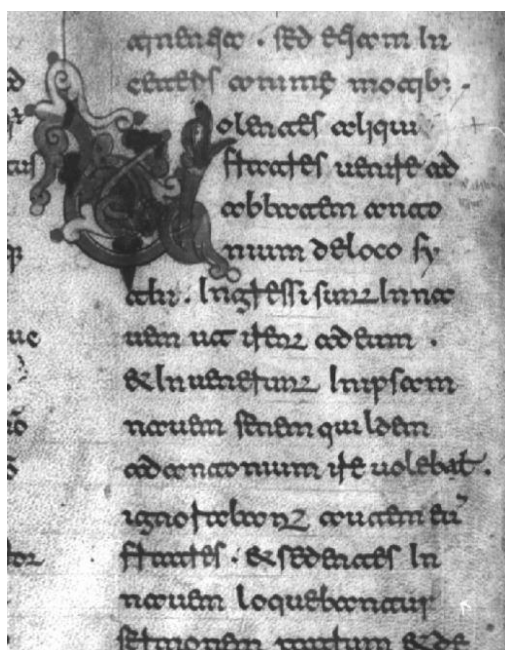 sed etiam In
anime motib;
Volentes aliqui
fratres uenire ad
abbatem anto
nium de loco sy
athi. Ingressi sunt In na
uem ut irent ad eum.
& Inuenerunt In ipsam
nauem senem qui Idem
ad antonium ire uolebat.
ignorabant autem eū
fratres. & sedentes In
nauem loquebantur
sermonem patrum & de